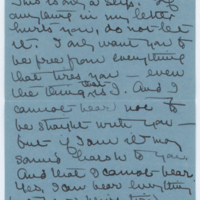 This is only a slip. If
anything in my letter
hurts you, do not let
it. I only want you to
be free from everything
that tires you — even
the thing that is I. And I
cannot bear not to
be straight with you —
but if I am it may
sound harsh to you.
And that I cannot bear
Yes, I can bear everything